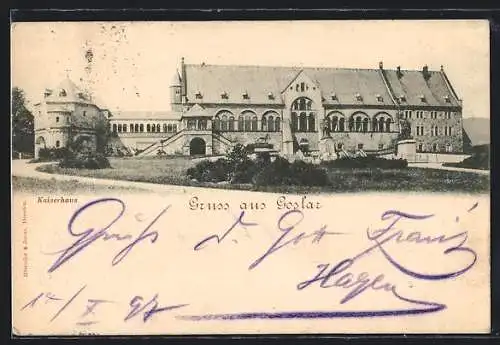 Kaiserhaus
Gruss aus Goslar
Gruß d. Gott Franz
Hagen
14/X 97